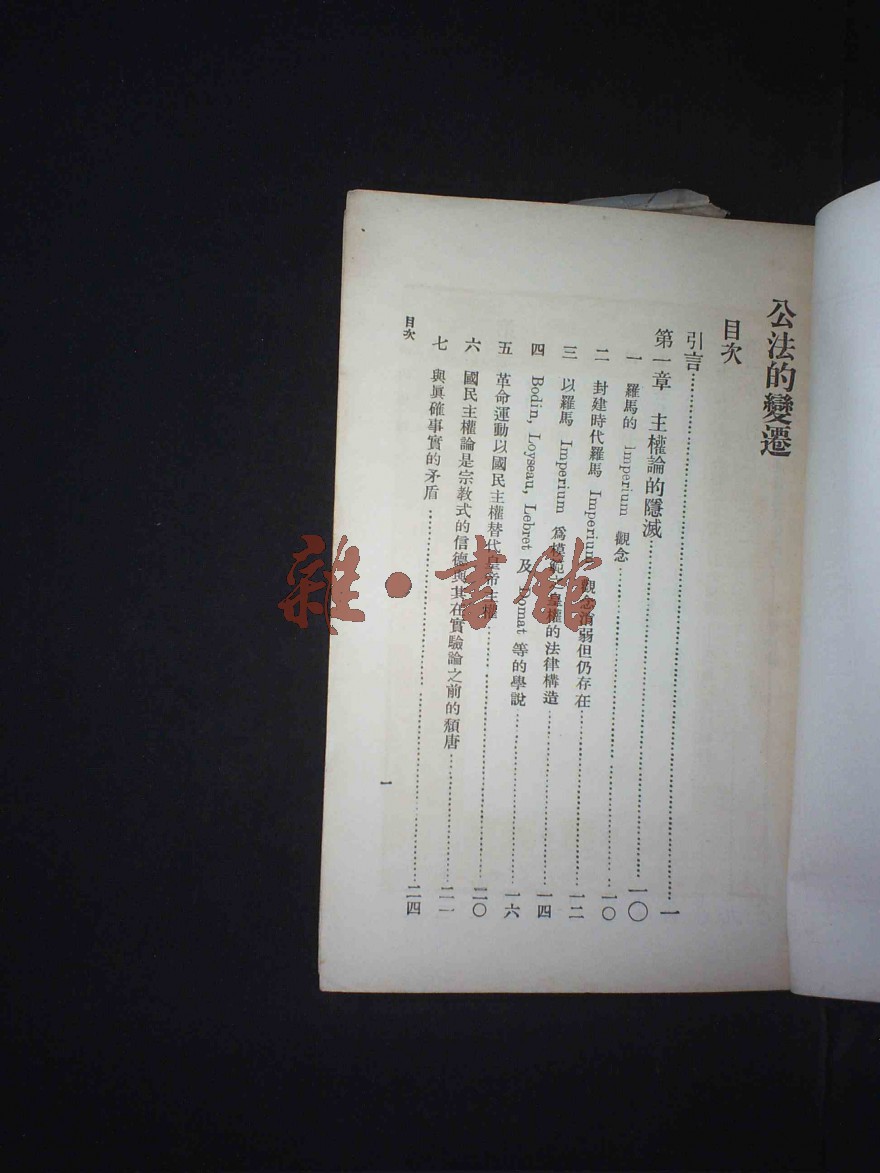 公法的變遷
目次
引言……一
第一章 主權論的隱滅……一〇
一 羅馬的 imperium 觀念……一〇
二 封建時代羅馬 Imperium 觀念消弱但仍存在……一二
三 以羅馬 Imperium 爲模範之皇權的法律構造……一四
四 Bodin, Loyseau, Lebret 及 Domat 等的學說……一六
五 革命運動以國民主權替代皇帝主權……二〇
六 國民主權論是宗教式的信德與其在實驗論之前的頹唐……二一
七 與眞確事實的矛盾……二四
目次
一
雜·書館